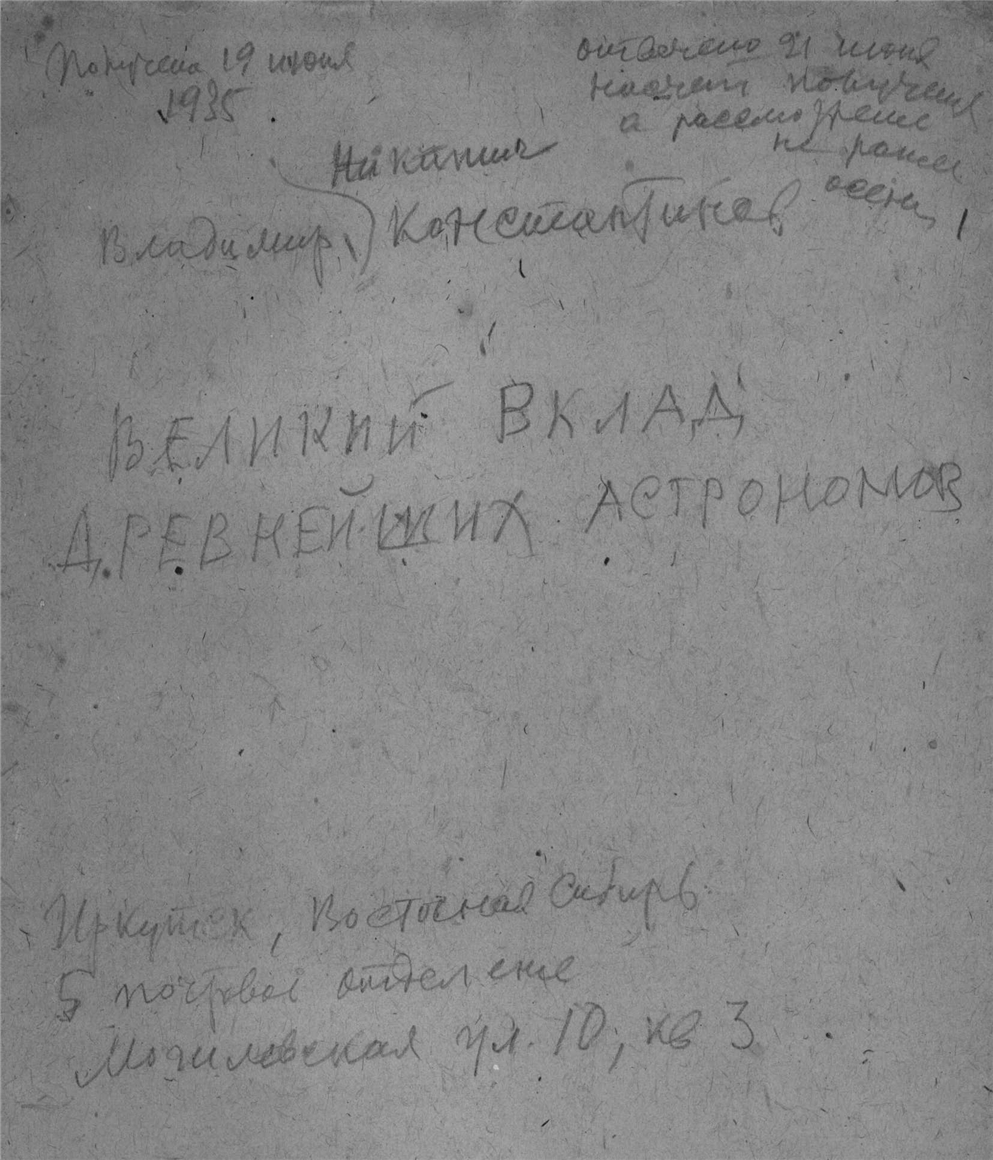 Получена 19 июня
1935
отвечено 21 июня
насчет получения
а рассмотрение
не ранее
осени
Никитич
Владимир Константинов
ВЕЛИКИЙ ВКЛАД
ДРЕВНЕЙШИХ АСТРОНОМОВ
Иркутск, Восточная Сибирь
5 почтовое отделение
Могилевская ул. 10, кв 3